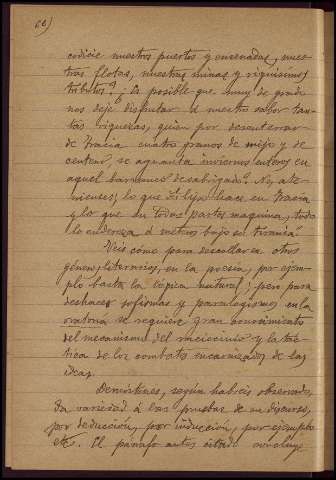 66)
codicie nuestros puertos y ensenadas, nues-
tras flotas, nuestras minas y riquísimos
tributos? ¿Es posible que muy de grado
nos deje disfrutar á nuestro sabor tan-
tas riquezas, quien por desenterrar
de Tracia cuatro granos de mijo y de
centeno, se aguanta inviernos enteros en
aquel barranco desabrigado? No, ate-
nienses; lo que Filipo hace en Tracia
y lo que en todas partes maquina, todo
lo endereza á meteros bajo su tiranía."
Veis cómo para descollar en otros
géneros literarios, en la poesía, por ejem-
plo basta la lógica natural; pero para
deshacer sofismas y paralogismos en la
oratoria se requiere gran conocimiento
del mecanismo del raciocinio y la tác-
tica de los combates encarnizados de las
ideas.
Demóstenes, según habéis observado,
da variedad á las pruebas de su discurso,
por deducción, por inducción, por ejemplo
etc. El párrafo antes citado concluye